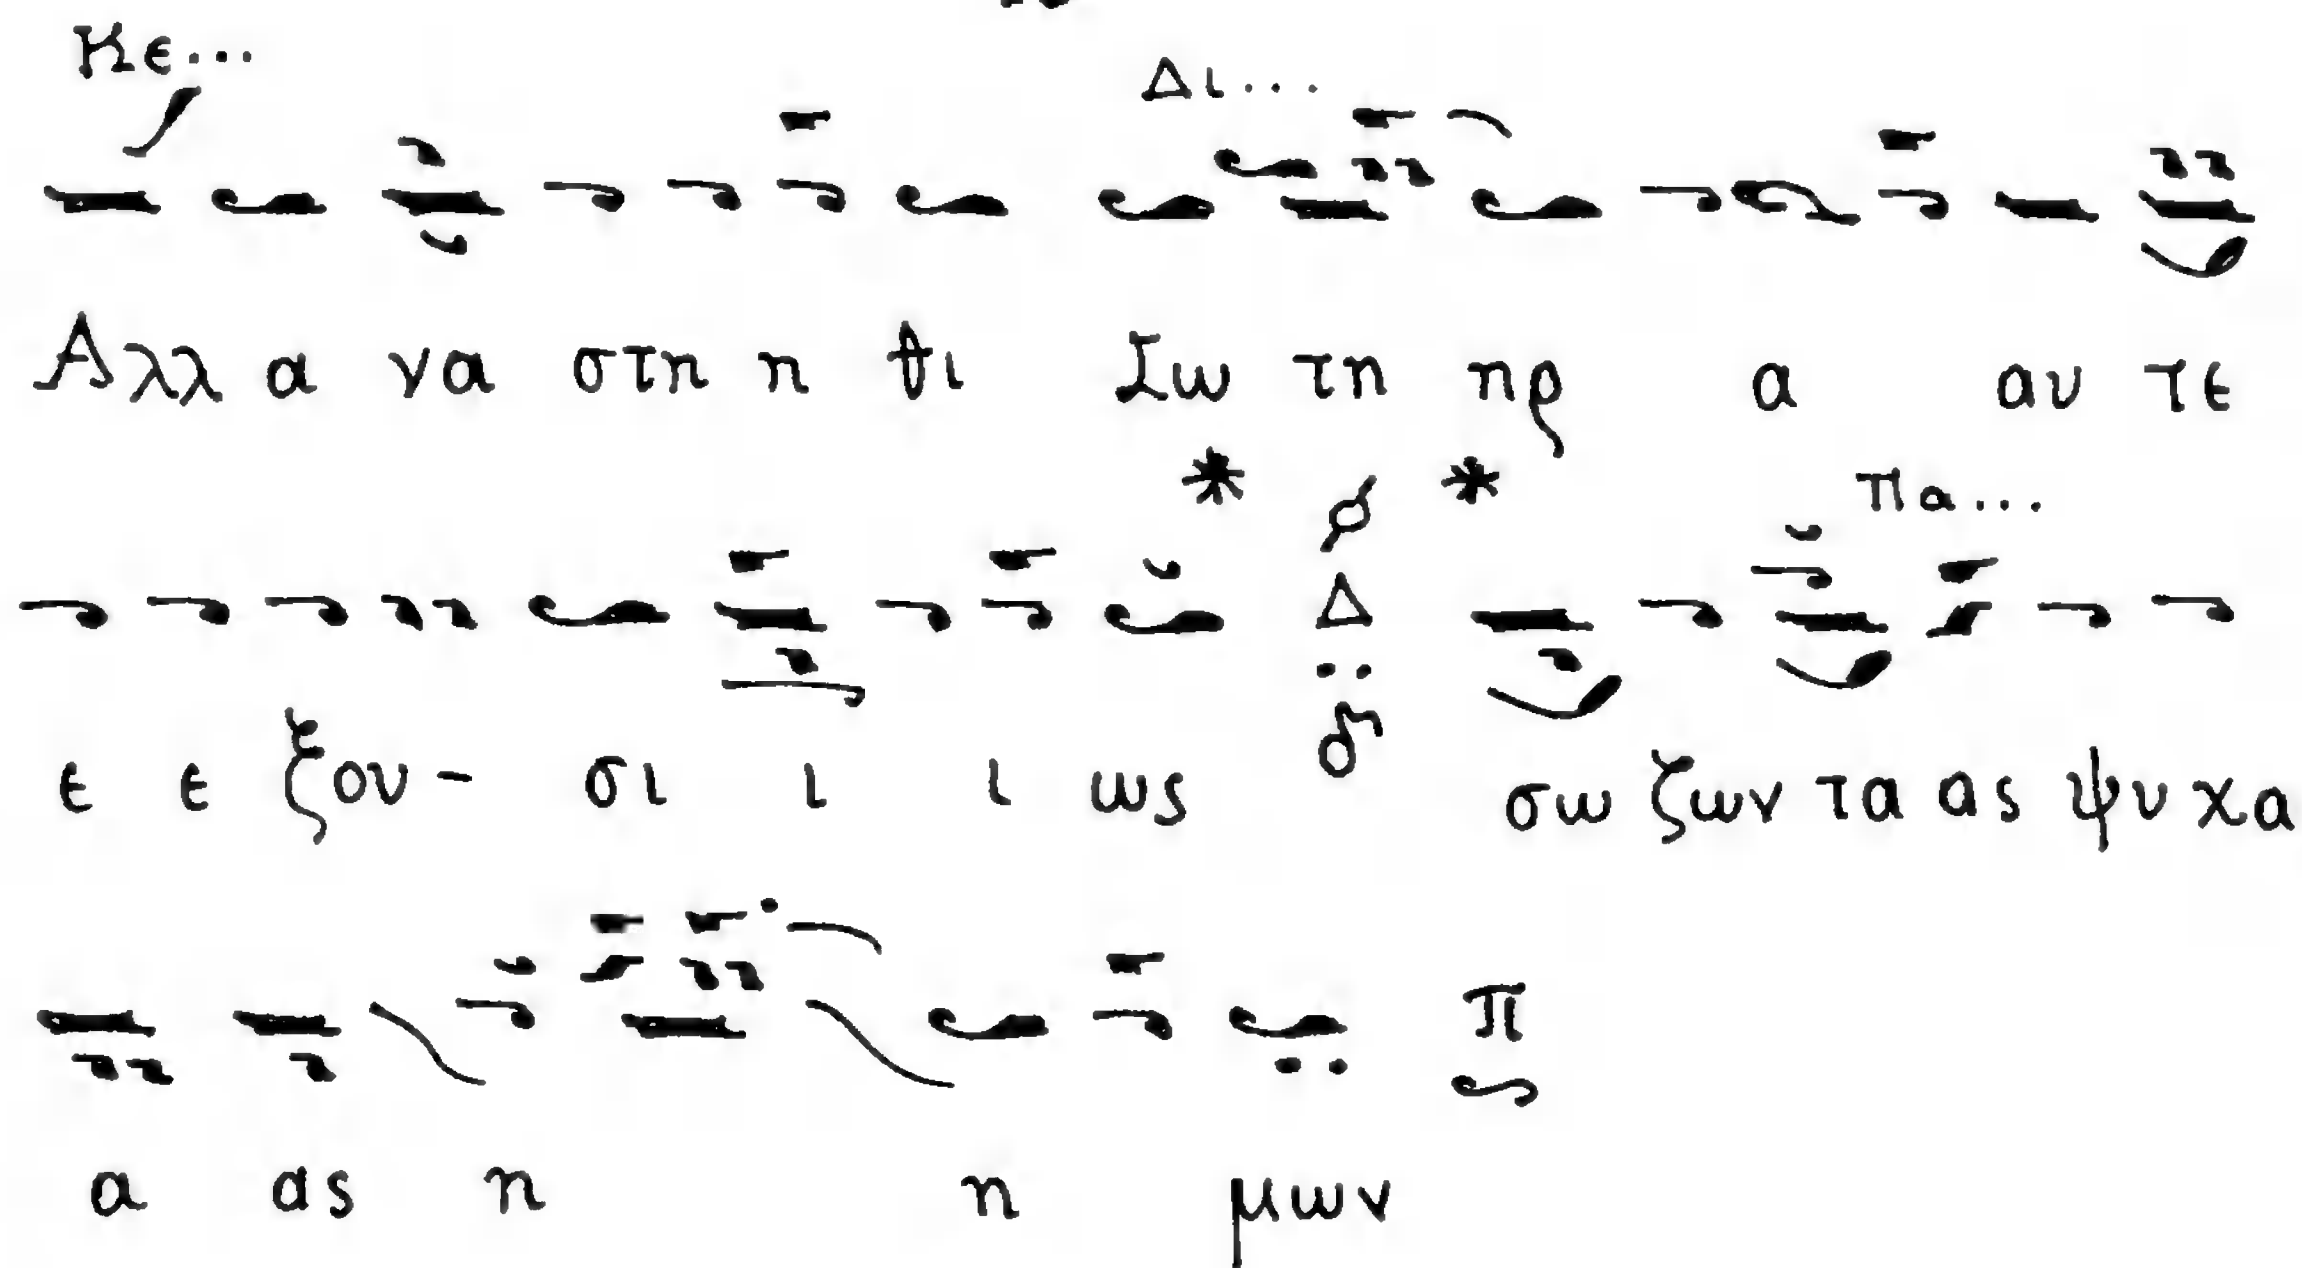 Κε... Δι...
Αλλ α να στη η θι Σω τη ηρ α αυ τε
* Δ * πα...
ε ε ξου - σι ι ι ως σω ζων τα ας ψυ χα
π
α ας η η μων